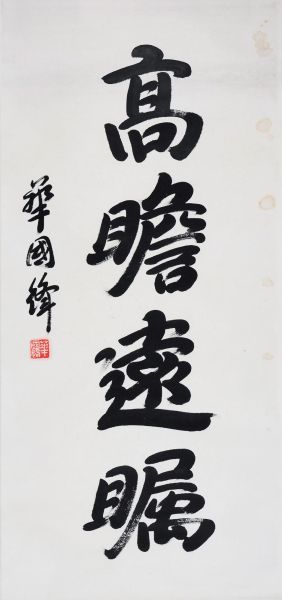 高瞻遠瞩
華國鋒